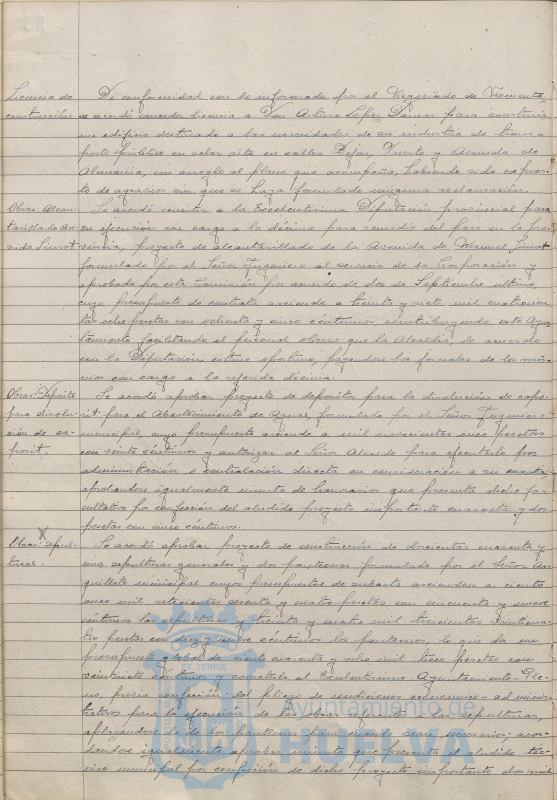 Licencia de construcción
De conformidad con lo informado por el Negociado de Fomento,
se acordó conceder licencia a Don Arturo Lopez Damas para construir
un edificio destinado a las necesidades de su industria de trans
porte público en solar sito en calles Béjar, Puerto y Avenida de
Alemania, con arreglo al plano que acompaña, habiendo sido expues
to de agravios sin que se haya formulado ninguna reclamación.
Obras: Alcan-
tarillado Ave
nida Siurot
Se acordó remitir a la Excelentísima Diputación provincial para
su ejecución con cargo a la décima para remedio del paro en la pro
vincia, proyecto de alcantarillado de la Avenida de Manuel Siurot
formulado por el Señor Ingeniero al servicio de la Corporación y
aprobado por esta Comisión por acuerdo de dos de Septiembre último,
cuyo presupuesto de contrata asciende a treinta y siete mil cuatrocien
tas ocho pesetas con ochenta y cinco céntimos contribuyendo este Ayun
tamiento facilitando el personal obrero que la Alcaldía, de acuerdo
con la Diputación estime oportuno, pagandose los jornales de los mis
mos con cargo a la referida décima.
Obras: Depósito
para disolu-
ción de ca-
porit.
Se acordó aprobar proyecto de depósitos para la disolución de capo-
rit para el Abastecimiento de Aguas, formulado por el Señor Ingeniero
municipal, cuyo presupuesto asciende a mil novecientas once pesetas
con veinte céntimos y autorizar al Señor Alcalde para ejecutarlo por
administración o contratación directa en consideración a su cuantía,
aprobandose igualmente minuta de honorarios que presenta dicho fa-
cultativo por confección del aludido proyecto importante cuarenta y dos
pesetas con cinco céntimos.
X
Obras: Sepul-
turas.
Se acordó aprobar proyecto de construcción de doscientas cuarenta y
una sepulturas generales y dos panteones formulado por el Señor Ar
quitecto municipal cuyos presupuestos de subasta ascienden a ciento
once mil setecientas ochenta y cuatro pesetas con cincuenta y nueve
céntimos las sepulturas y treinta y cuatro mil trescientas veinticua-
tro pesetas con diez y nueve céntimos los panteones, lo que da un
presupuesto global de ciento cuarenta y ocho mil trece pesetas con
veintisiete céntimos y someterlo al Excelentísimo Ayuntamiento Ple-
no, previa confección del pliego de condiciones económico-adminis
trativas para la ejecución de las obras referentes a las sepulturas,
aplazandose la de los panteones para cuando sean necesarios; acor-
dandose igualmente aprobar minuta que presenta el aludido téc-
nico municipal por confección de dicho proyecto importante dos mil
ST TERRA
Ayuntamiento de
HUELVA